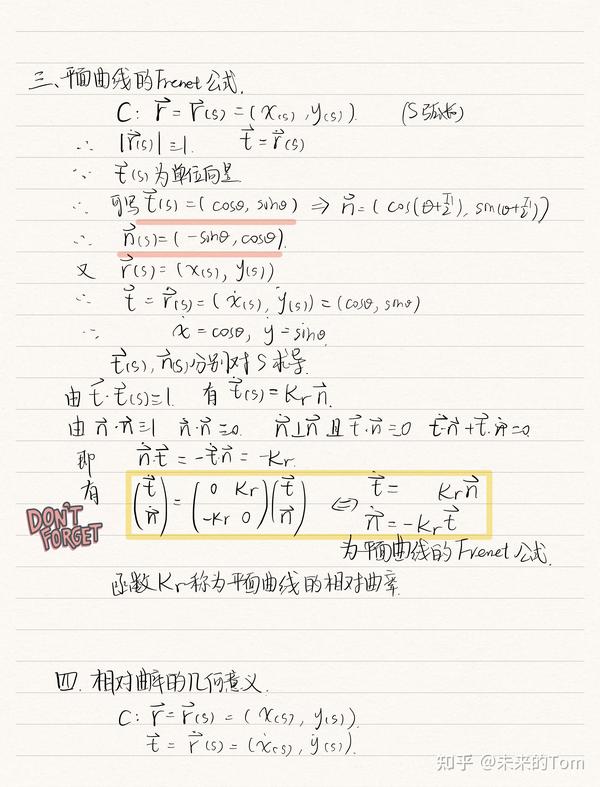 三、平面曲线的Frenet公式.
C: r⃗ = r⃗(s) = (x(s), y(s)). (S弧长)
∴ |ṙ⃗(s)| ≡ 1. t⃗ = ṙ⃗(s)
∵ t⃗(s)为单位向量
∴ 可写 t⃗(s) = (cosθ, sinθ) ⇒ n⃗ = (cos(θ+π/2), sin(θ+π/2))
∴ n⃗(s) = (-sinθ, cosθ).
又 r⃗(s) = (x(s), y(s))
∴ t⃗ = ṙ⃗(s) = (ẋ(s), ẏ(s)) = (cosθ, sinθ)
∴ ẋ = cosθ, ẏ = sinθ.
t⃗(s), n⃗(s)分别对S求导.
由 t⃗·t⃗(s) ≡ 1. 有 ṫ⃗(s) = Kr n⃗.
由 n⃗·n⃗ ≡ 1. ṅ⃗·n⃗ = 0. ṅ⃗⊥n⃗ 且 t⃗·n⃗ = 0 ṫ⃗·n⃗ + t⃗·ṅ⃗ = 0.
即 ṅ⃗·t⃗ = -ṫ⃗·n⃗ = -Kr.
有 (ṫ⃗ ṅ⃗) = (0 Kr -Kr 0)(t⃗ n⃗) ⇔ ṫ⃗ = Kr n⃗
ṅ⃗ = -Kr t⃗
DON'T FORGET
为平面曲线的Frenet公式.
函数Kr称为平面曲线的相对曲率.
四. 相对曲率的几何意义.
C: r⃗ = r⃗(s) = (x(s), y(s)).
t⃗ = ṙ⃗(s) = (ẋ(s), ẏ(s)).
知乎 @未来的Tom